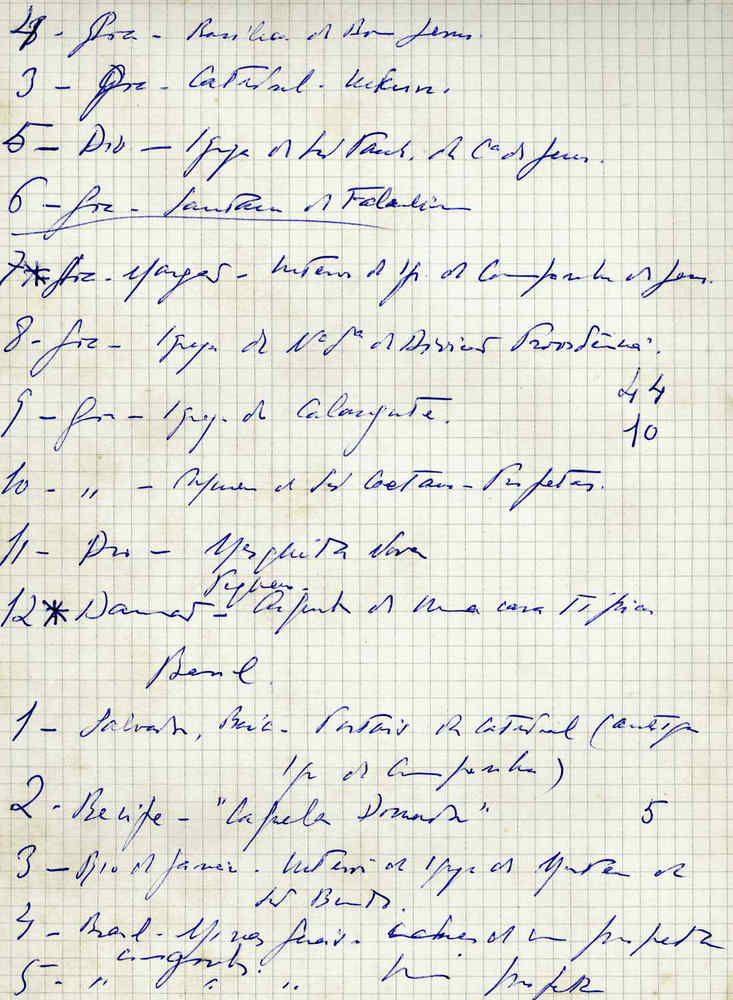 4 - Goa - Basílica de Bom Jesus.
3 - Goa - Catedral - interior.
5 - Dio - Igreja de São Paulo, da Cª de Jesus.
6 - Goa - Santana de Talaulim
7 * Goa - Margão - Interior da Ig. da Companhia de Jesus.
8 - Goa - Igreja de Nª Sª da Divina Providência.
44
9 - Goa - Igreja de Calangute.
10
10 - " - de São Caetano -
11 - Dio - Mesquita Nova
Pequeno
12 * Damão - de uma casa típica
Brasil.
1 - Salvador, Baía - Portais da Catedral (antiga
Ig. da Companhia)
2 - Recife - "Capela Dourada" 5
3 - Rio de Janeiro - Interior da Igreja do Mosteiro de
São Bento.
4 - Brasil - Minas Gerais - de um profeta
Congonhas.
5 - " " " profeta